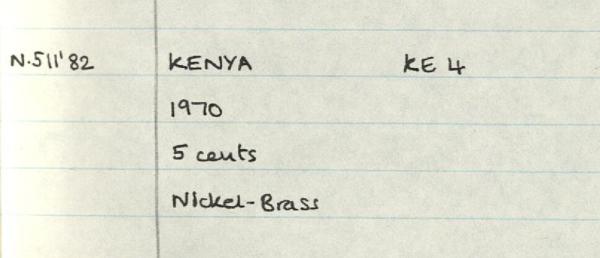 N.511'82 KENYA KE 4
1970
5 cents
Nickel-Brass